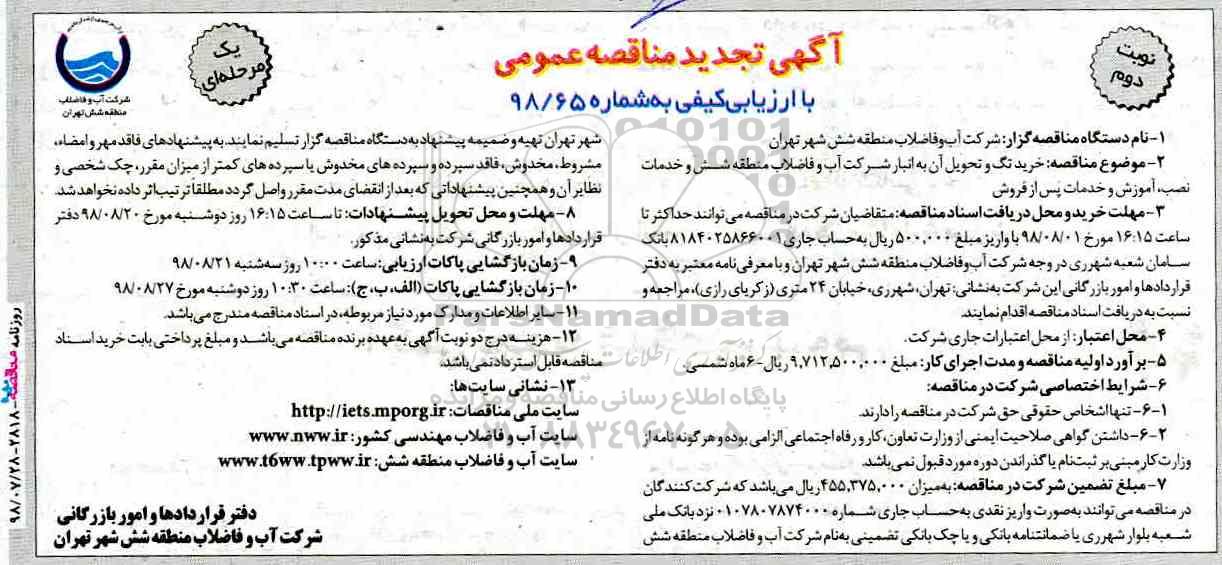 آگهی تجدید مناقصه عمومی
با ارزیابی کیفی به‌شماره ۹۸/۶۵
نوبت
دوم
یک
مرحله‌ای
شرکت آب و فاضلاب
منطقه شش تهران
۱- نام دستگاه مناقصه گزار: شرکت آب و فاضلاب منطقه شش شهر تهران
۲- موضوع مناقصه: خرید تگ و تحویل آن به انبار شرکت آب و فاضلاب منطقه شش و خدمات
نصب، آموزش و خدمات پس از فروش
۳- مهلت خرید و محل دریافت اسناد مناقصه: متقاضیان شرکت در مناقصه می‌توانند حداکثر تا
ساعت ۱۶:۱۵ مورخ ۹۸/۰۸/۰۱ با واریز مبلغ ۵۰۰,۰۰۰ ریال به حساب جاری ۸۱۸۴۰۲۵۸۶۶۰۰۱ بانک
سامان شعبه شهرری در وجه شرکت آب و فاضلاب منطقه شش شهر تهران و با معرفی نامه معتبر به دفتر
قراردادها و امور بازرگانی این شرکت به نشانی: تهران، شهرری، خیابان ۲۴ متری (زکریای رازی)، مراجعه و
نسبت به دریافت اسناد مناقصه اقدام نمایند.
۴- محل اعتبار: از محل اعتبارات جاری شرکت.
۵- برآورد اولیه مناقصه و مدت اجرای کار: مبلغ ۹,۷۱۲,۵۰۰,۰۰۰ ریال - ۶ ماه شمسی
۶- شرایط اختصاصی شرکت در مناقصه:
۶-۱- تنها اشخاص حقوقی حق شرکت در مناقصه را دارند.
۶-۲- داشتن گواهی صلاحیت ایمنی از وزارت تعاون، کار و رفاه اجتماعی الزامی بوده و هرگونه نامه از
وزارت کار مبنی بر ثبت نام یا گذراندن دوره مورد قبول نمی‌باشد.
۷- مبلغ تضمین شرکت در مناقصه: به میزان ۴۵۵,۳۷۵,۰۰۰ ریال می‌باشد که شرکت کنندگان
در مناقصه می‌توانند به صورت واریز نقدی به حساب جاری شماره ۰۱۰۷۸۰۷۸۷۴۰۰۰ نزد بانک ملی
شعبه بلوار شهرری یا ضمانتنامه بانکی و یا چک بانکی تضمینی به نام شرکت آب و فاضلاب منطقه شش
شهر تهران تهیه و ضمیمه پیشنهاد به دستگاه مناقصه گزار تسلیم نمایند. به پیشنهادهای فاقد مهر و امضاء،
مشروط، مخدوش، فاقد سپرده و سپرده های مخدوش یا سپرده های کمتر از میزان مقرر، چک شخصی و
نظایر آن و همچنین پیشنهاداتی که بعد از انقضای مدت مقرر واصل گردد مطلقاً ترتیب اثر داده نخواهد شد.
۸- مهلت و محل تحویل پیشنهادات: تا ساعت ۱۶:۱۵ روز دوشنبه مورخ ۹۸/۰۸/۲۰ دفتر
قراردادها و امور بازرگانی شرکت به نشانی مذکور.
۹- زمان بازگشایی پاکات ارزیابی: ساعت ۱۰:۰۰ روز سه شنبه ۹۸/۰۸/۲۱
۱۰- زمان بازگشایی پاکات (الف، ب، ج): ساعت ۱۰:۳۰ روز دوشنبه مورخ ۹۸/۰۸/۲۷
۱۱- سایر اطلاعات و مدارک مورد نیاز مربوطه، در اسناد مناقصه مندرج می‌باشد.
۱۲- هزینه درج دو نوبت آگهی به عهده برنده مناقصه می‌باشد و مبلغ پرداختی بابت خرید اسناد
مناقصه قابل استرداد نمی‌باشد.
۱۳- نشانی سایت‌ها:
سایت ملی مناقصات: http://iets.mporg.ir
سایت آب و فاضلاب مهندسی کشور: www.nww.ir
سایت آب و فاضلاب منطقه شش: www.t6ww.tpww.ir
دفتر قراردادها و امور بازرگانی
شرکت آب و فاضلاب منطقه شش شهر تهران
روزنامه مناقصه مزایده - ۲۸۱۸ - ۹۸/۰۷/۲۸
ParsNamadData
پایگاه اطلاع رسانی مناقصه و مزایده
۰۲۱-۸۸۳۴۹۶۷۰-۵